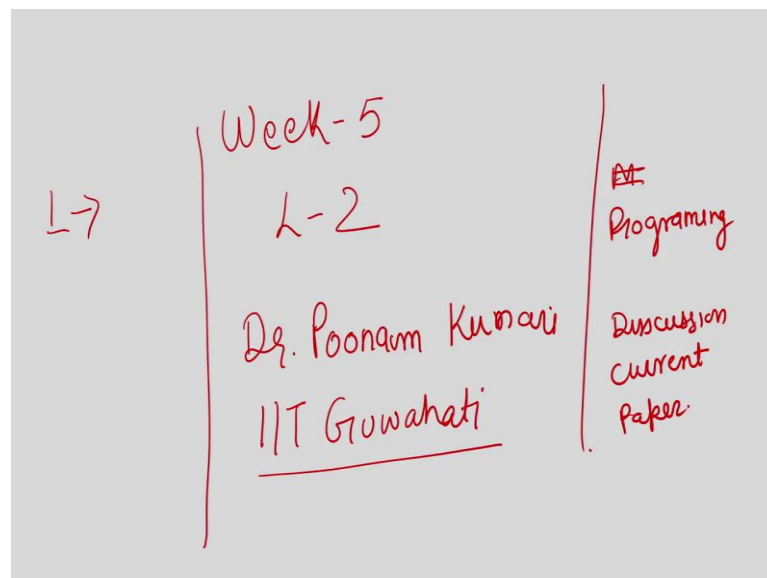 Week-5
L-2
Dr. Poonam Kumari
IIT Guwahati
Programing
Discussion
Current
Paper.